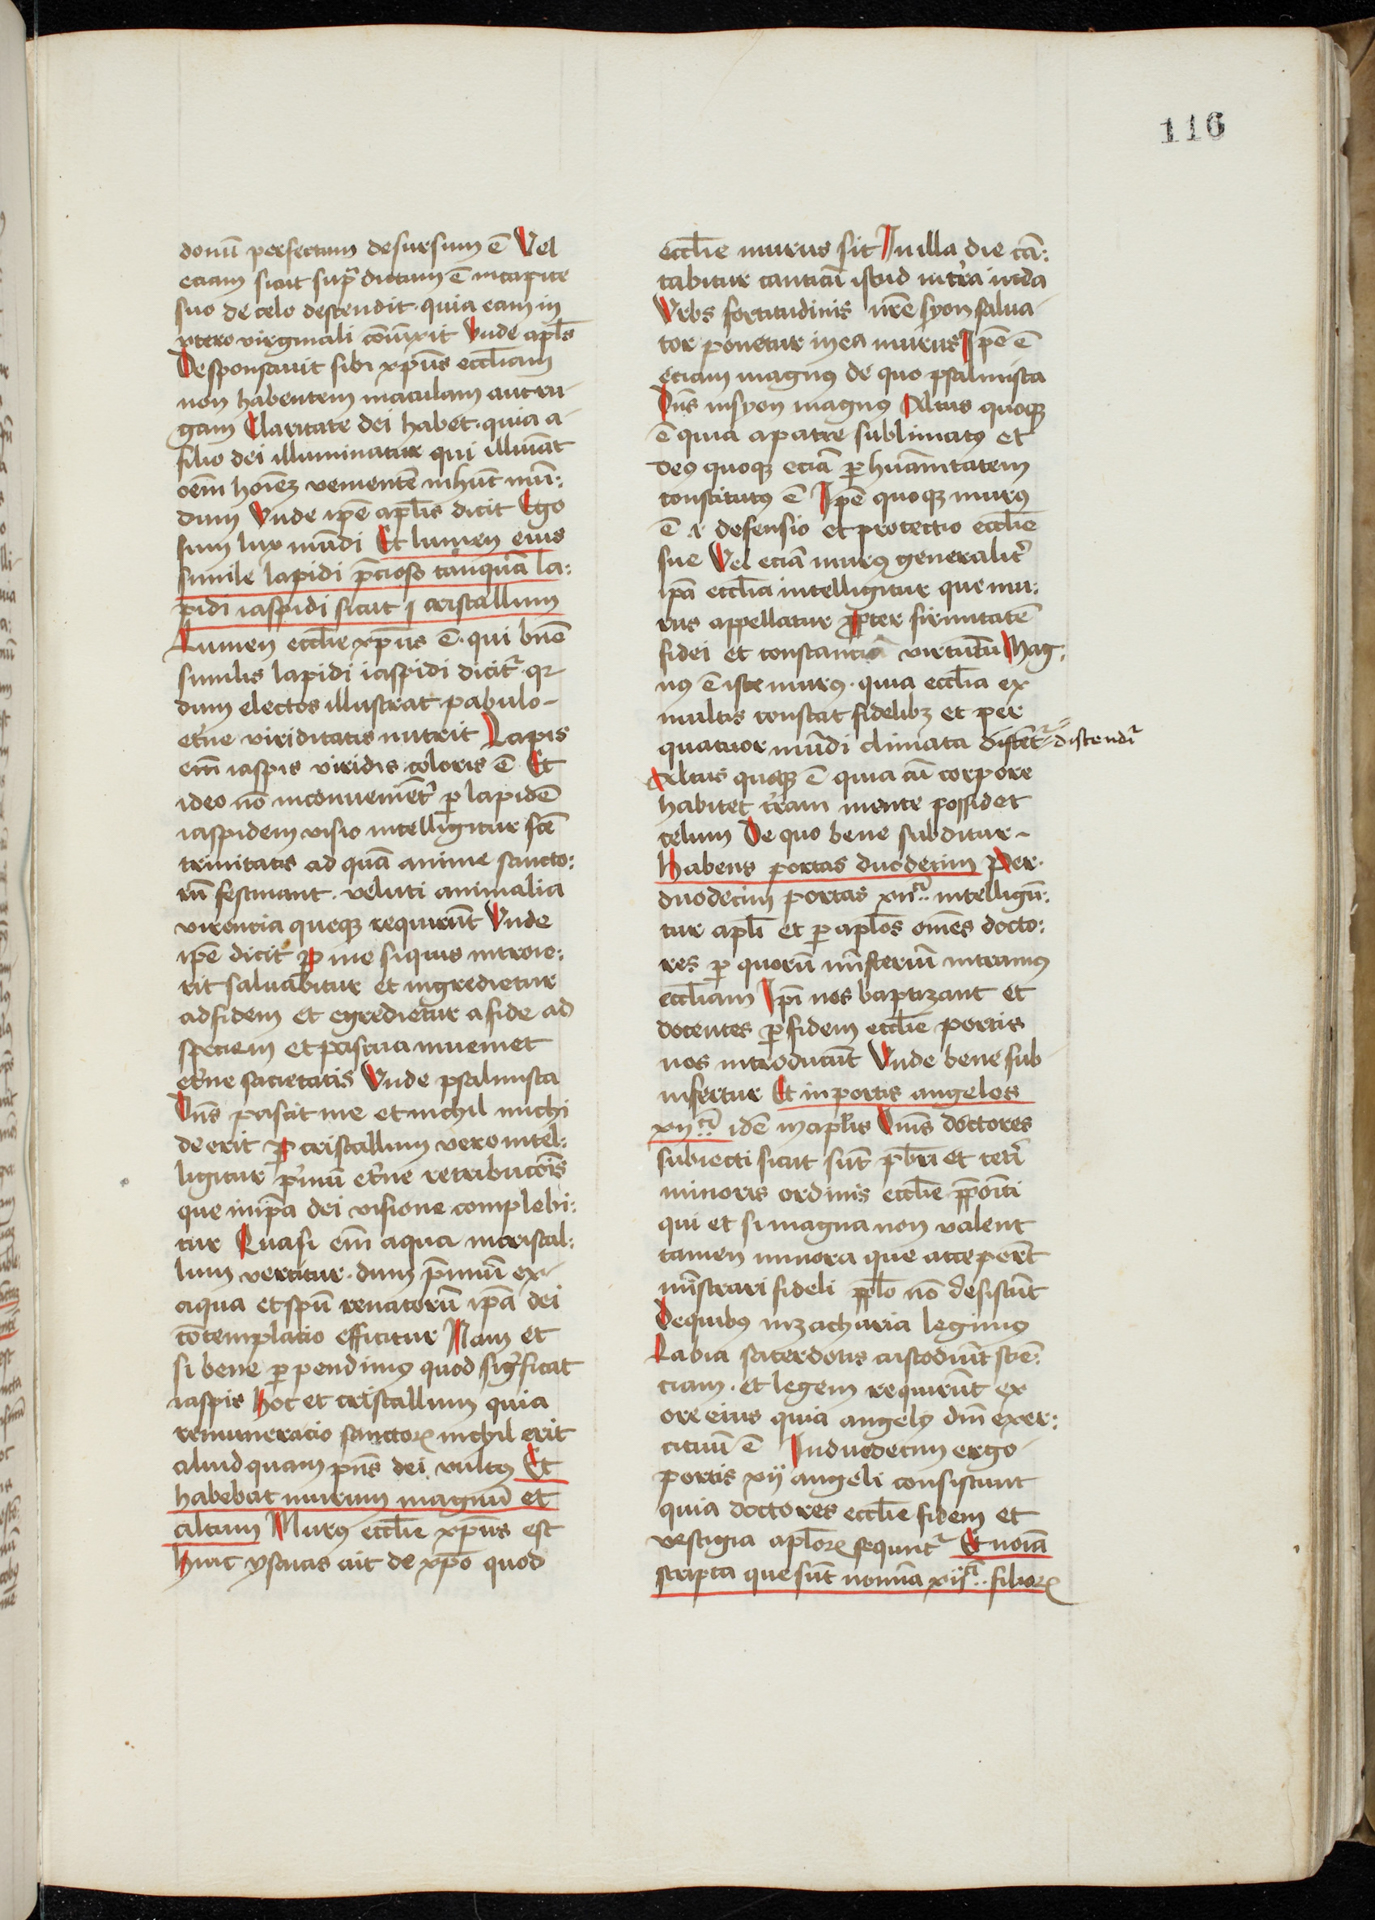 116
donū perfectum desursum ē Vel
eciam sicut sup̄ dictum ē in capite
suo de celo descendit · quia eam in
vtero virginali cōiūxit Vnde apl̄s
Desponsauit sibi xp̄us eccl̄iam
non habentem maculam aut ru-
gam Claritatē dei habet · quia a
filio dei illuminatur qui illuīat
oēm hoīeꝫ venientē in hūc mū:
dum Vnde ip̄e apl̄is dicit Ego
sum lux mūdi Et lumen eius
simile lapidi p̄cioso tanquā la:
pidi iaspidi sicut cristallum
Lumen eccl̄ie xp̄us ē · qui bn̄e
similis lapidi iaspidi dicit᷑ · qꝛ
dum electos illustrat pabulo-
et̄ne viriditatis nutrit Lapis
em̄ iaspis viridis coloris ē Et
ideo nō inconuenient̉ ꝑ lapidē
iaspidem visio intelligitur scē
trinitatis ad quā anime sancto:
rū festinant · veluti animalia
virencia queqꝫ requirūt Vnde
ip̄e dicit ꝑ me si quis introie:
rit saluabitur et ingredietur
ad fidem et egredietur a fide ad
speciem et pascua inueniet
et̄ne sacietatis Vnde psalmista
Dn̄s pascit me et nichil michi
de erit ꝑ cristallum vero intel:
ligitur p̄miū et̄ne retribucōis
que in ip̄a dei visione complebi:
tur Quasi em̄ aqua in cristal:
lum vertitur · dum p̄miū ex
aqua et spū renatorū ip̄a dei
cōtemplatio efficitur Nam et
si bene ꝑpendimꝰ quod sig̉ficat
iaspis hoc et cristallum quia
remuneracio sanctoꝝ nichil erit
aliud quam p̄ns dei vultꝰ Et
habebat murum magnū et
altum Murꝰ eccl̄ie xp̄us est
hinc ysaias ait de xp̄o quod
eccl̄ie murus sit In illa die cā:
tabitur canticū istud in t̉ra iuda
Vrbs fortitudinis nr̄e syon salua-
tor ponetur in ea murus Ip̄e ē
eciam magnꝰ de quo psalmista
Dn̄s in syon magnꝰ Altus quoqꝫ
ē quia a patre sublimatꝰ et
deꝰ quoqꝫ eciā ꝑ huāitatem
constitutꝰ ē Ip̄e quoqꝫ murꝰ
ē defensio et protectio eccl̄ie
sue Vel eciā murꝰ generalit̉
ip̄a eccl̄ia intelligitur que mu:
rus appellatur ꝓpter firmitatē
fidei et constanciā virtutū Mag:
nꝰ ē iste murꝰ · quia eccl̄ia ex
multis constat fidelibꝫ et per
quatuor mūdi climata
Altus quoqꝫ ē quia cū corpore
habitet t̉ram mente possidet
celum De quo bene subditur-
habens portas duodecim Per·
duodecim portas xij intelligū:
tur apl̄i et ꝑ apl̄os om̄es docto:
res ꝑ quorū mīsteriū intramꝰ
eccl̄iam Ip̄i nos baptizant et
docentes ꝑ fidem eccl̄ie portis
nos introducūt Vnde bene sub
infertur Et in portis angelos
xij idē in apl̄is doctores
subiecti sicut sūt p̄bri et cet̉i
minoris ordinis eccl̄ie p̄poīti
qui et si magna non valent
tamen minora que acceperūt
mīstrari fideli pplo nō desistūt
De quibꝰ in zacharia legimꝰ
Labia sacerdotis custodiūt sciē:
ciam · et legem requirūt ex
ore eius quia angelꝰ dn̄i exer:
cituū ē In duodecim ergo
portis xij angeli consistunt
quia doctores eccl̄ie fidem et
vestigia apl̄oꝝ sequunt᷑ Et noīa
scripta que sūt nomīa xij filioꝝ